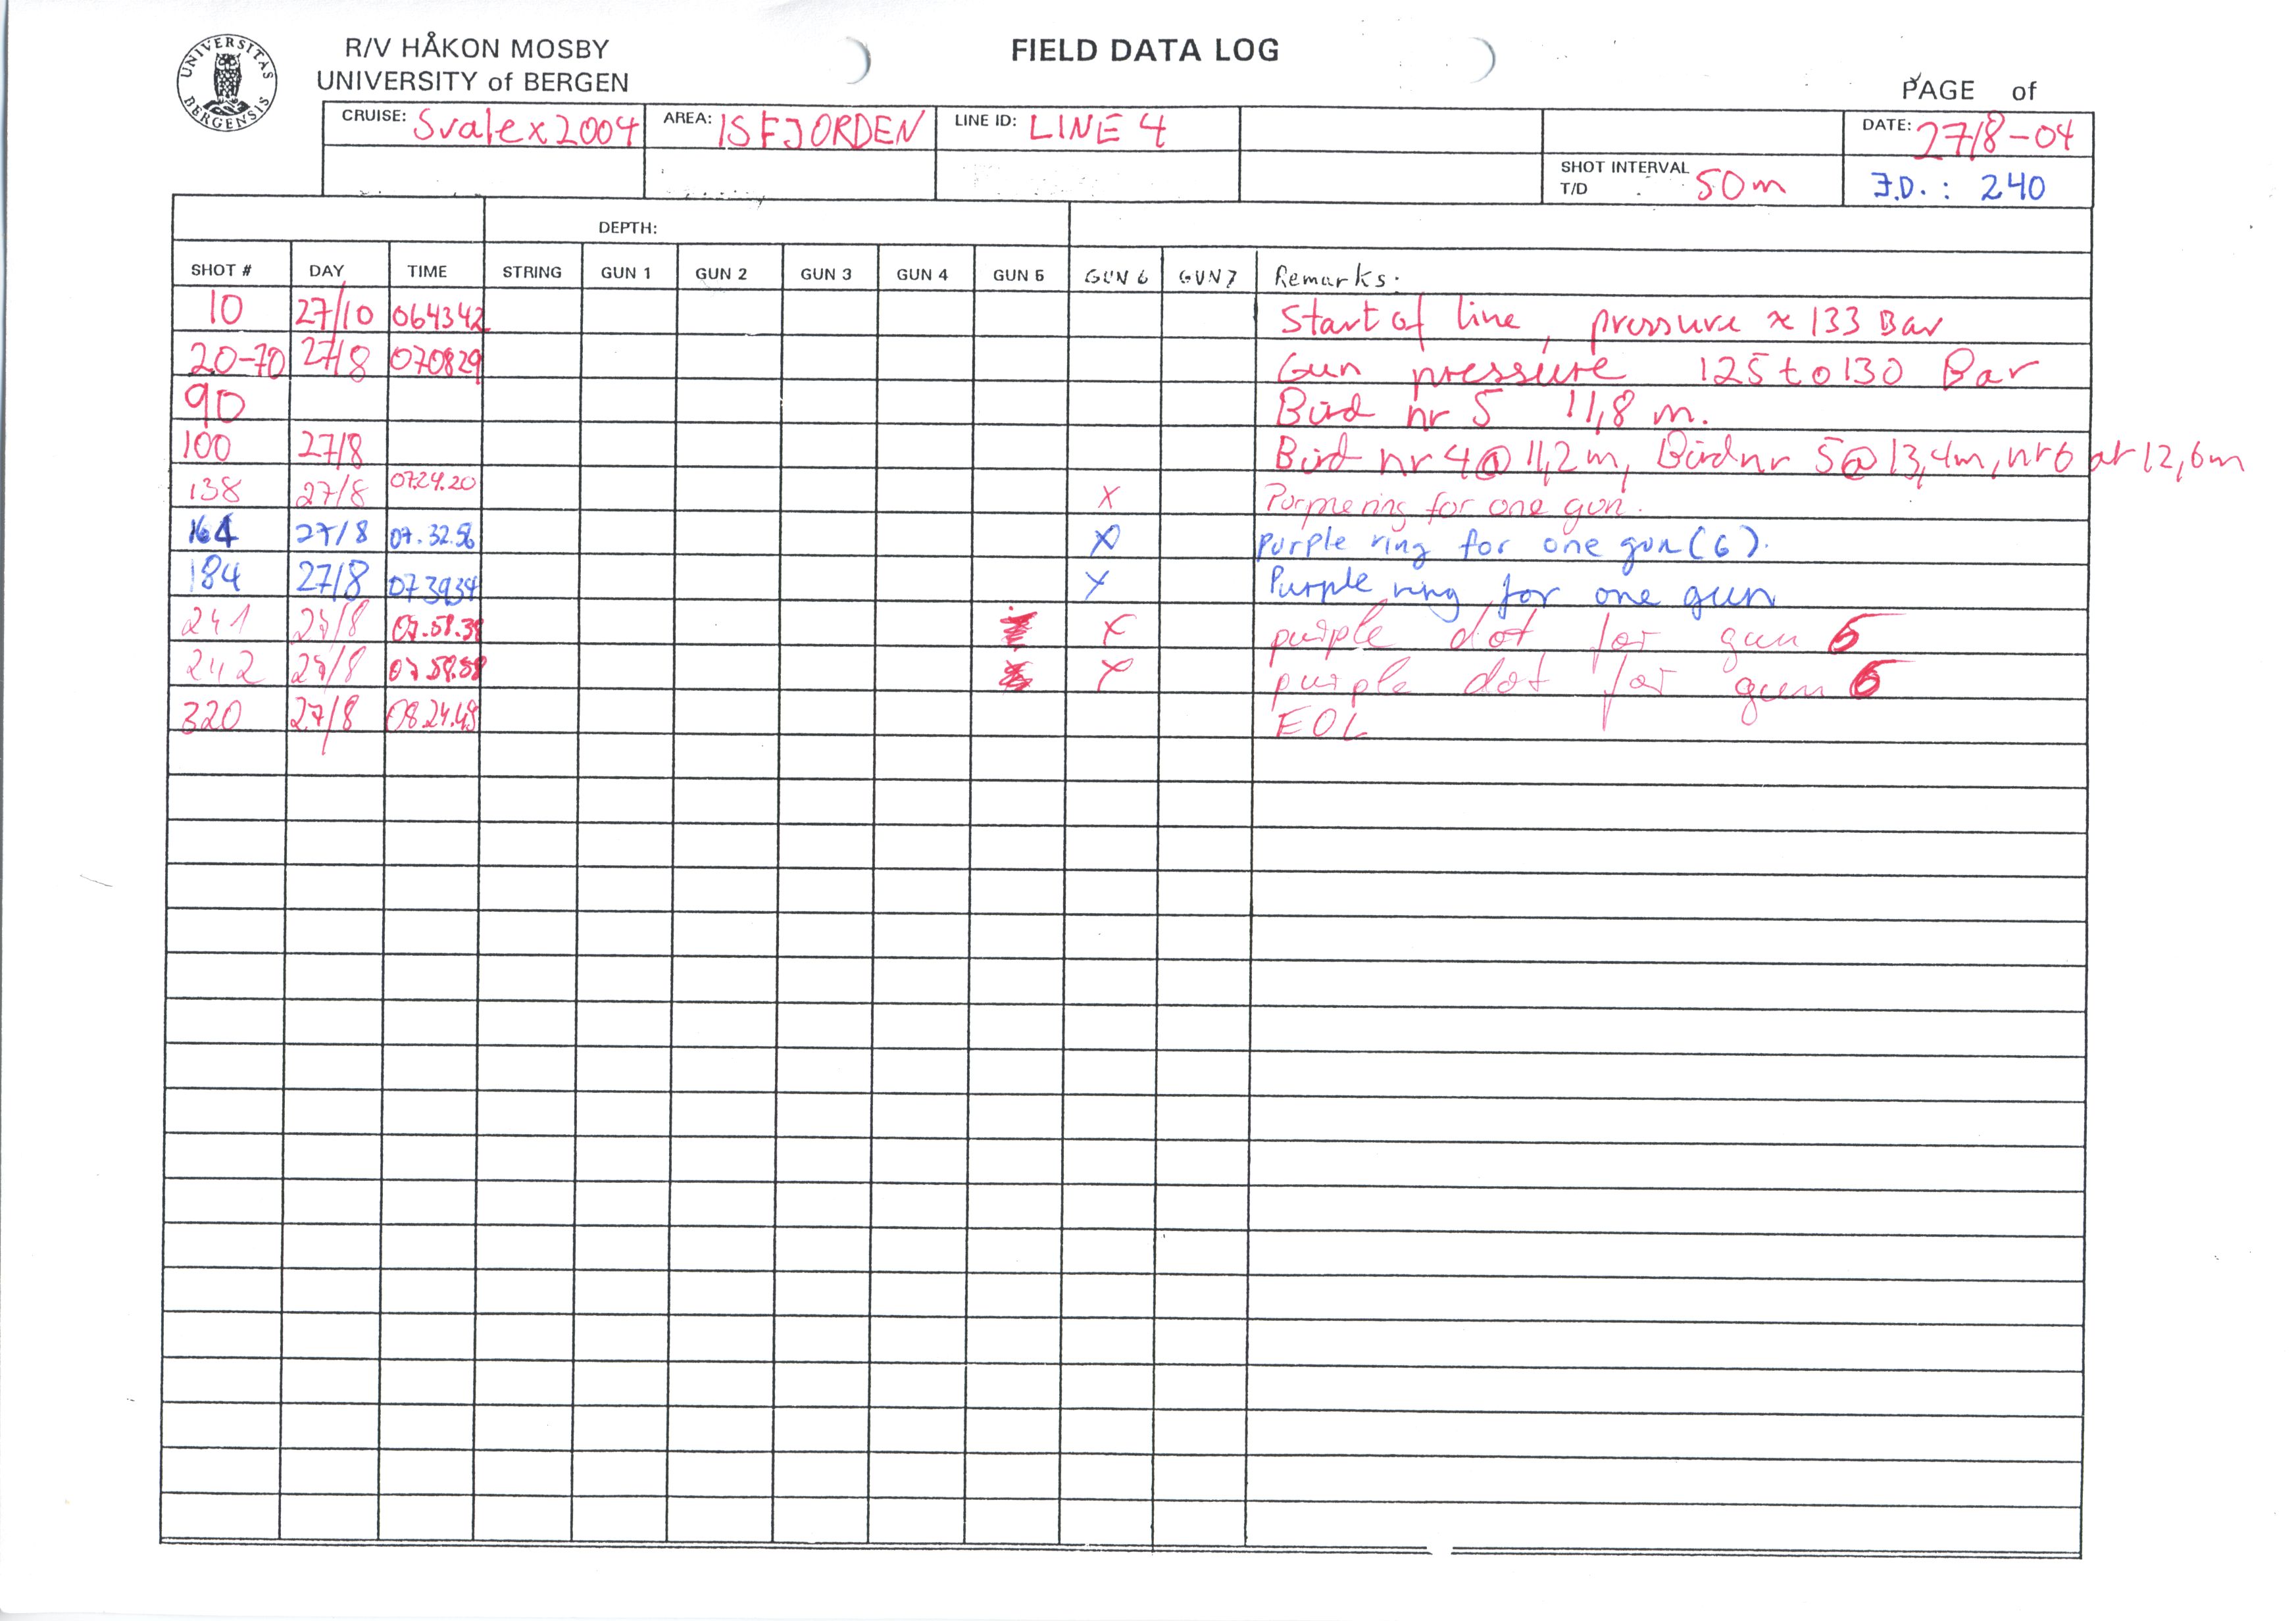 UNIVERSITAS BERGENSIS
R/V HÅKON MOSBY
UNIVERSITY of BERGEN
FIELD DATA LOG
PAGE of
CRUISE: Svalex2004 AREA: ISFJORDEN LINE ID: LINE 4 DATE: 27/8-04
SHOT INTERVAL T/D 50m J.D.: 240
DEPTH:
SHOT # DAY TIME STRING GUN 1 GUN 2 GUN 3 GUN 4 GUN 5 GUN 6 GUN 7 Remarks:
10 27/10 064342 Start of line, pressure ≈ 133 Bar
20-70 27/8 070829 Gun pressure 125 to 130 Bar
90 Bird nr 5 11,8 m.
100 27/8 Bird nr 4@11,2m, Bird nr 5@13,4m, nr 6 at 12,6m
138 27/8 0724.20 X ring for one gun.
164 27/8 07.32.56 X purple ring for one gun (6).
184 27/8 073934 X Purple ring for one gun
241 27/8 07.58.38 X purple dot for gun 6
242 27/8 X purple dot for gun 6
320 27/8 08.24.48 EOL